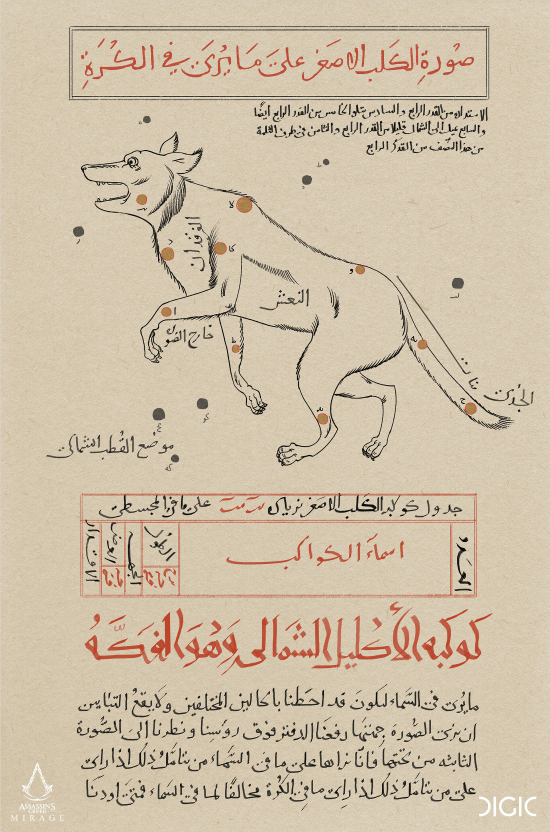 صورة الكلب الاصغر على ما يرى في الكرة
الاستدارة من القدر الرابع والسادس يتلو الخامس من القدر الرابع ايضًا
والسابع يميل الى الشمال قليلا من القدر الرابع والثامن في طرف الثلثة
من هذا النصف من القدر الرابع
الفرقدان
النعش
خارج الصورة
الجدي
موضع القطب الشمالي
جدول كوكبة الكلب الاصغر بزيادة على ما في المجسطي
العدد
اسماء الكواكب
الطول
الجهة
العرض
الاقدار
كوكبة الأكليل الشمالي وهو الفكة
ما يرى في السماء ليكون قد احطنا بالحالين المختلفين ولا يقع التباين
ان يرى الصورة جميعها رفعنا الدفتر فوق رؤسنا ونظرنا الى الصورة
الثابتة من تحتها فانا نراها على ما في السماء من يتامل ذلك اذا راى
على من يتامل ذلك اذا راى ما في الكرة مخالفًا لما في السماء فمتى اردنا
ASSASSIN'S
CREED
MIRAGE
DIGIC